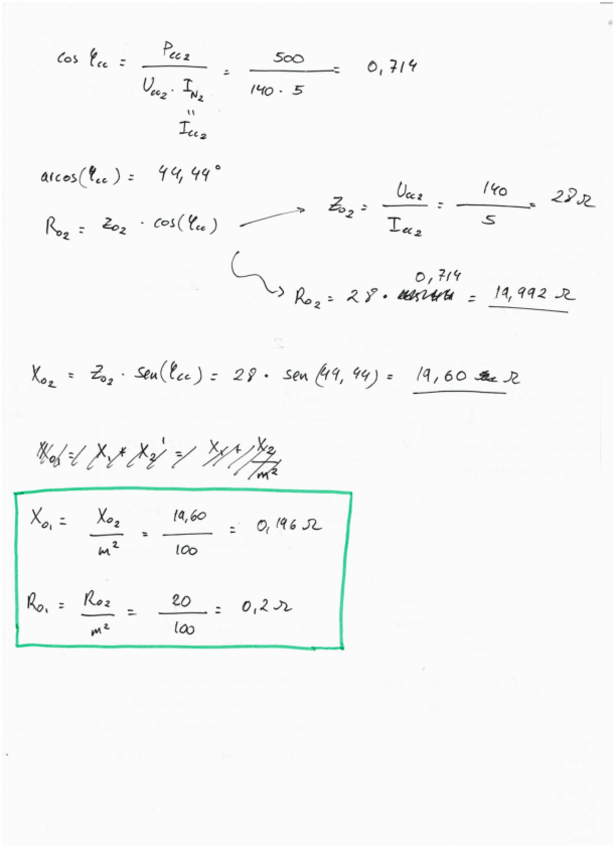 cos φcc = Pcc2 / (Ucc2 · IN2) = 500 / (140 · 5) = 0,714
"
Icc2
arcos(φcc) = 44,44°
Ro2 = Zo2 · cos(φcc) → Zo2 = Ucc2 / Icc2 = 140 / 5 = 28 Ω
Ro2 = 28 · 0,714 = 19,992 Ω
Xo2 = Zo2 · sen(φcc) = 28 · sen(44,44) = 19,60 Ω
Xo1 = X1 + X2' = X1 + X2 / m²
Xo1 = Xo2 / m² = 19,60 / 100 = 0,196 Ω
Ro1 = Ro2 / m² = 20 / 100 = 0,2 Ω